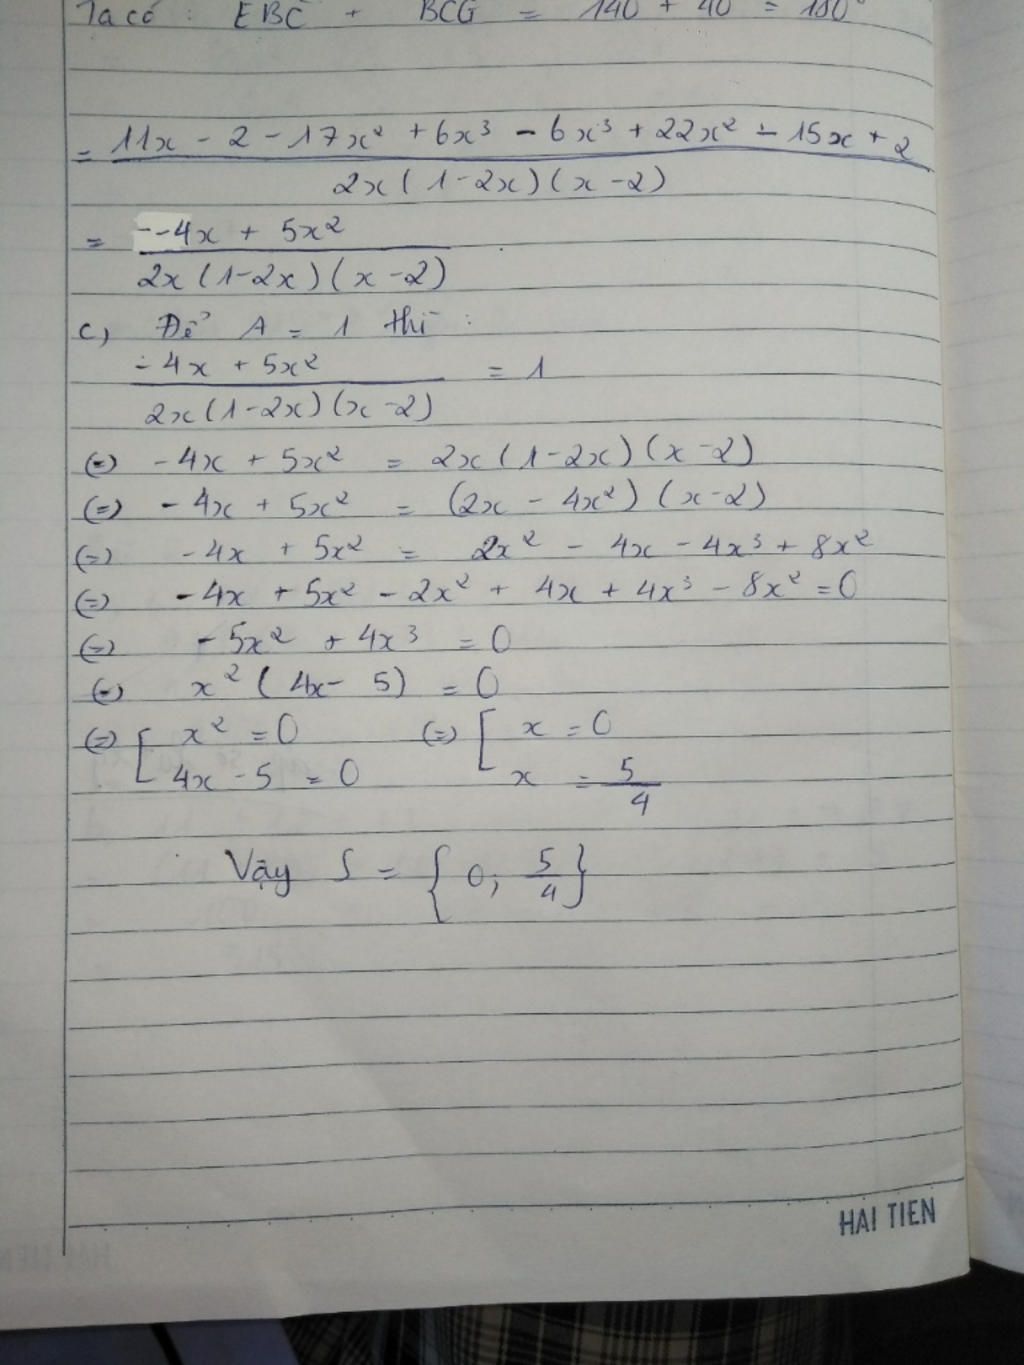 Ta có : EBC + BCG = 140 + 40 = 180°
= 11x - 2 - 17x² + 6x³ - 6x³ + 22x² - 15x + 2
2x(1-2x)(x-2)
= -4x + 5x²
2x(1-2x)(x-2)
c, Để A = 1 thì :
-4x + 5x² = 1
2x(1-2x)(x-2)
(=) -4x + 5x² = 2x(1-2x)(x-2)
(=) -4x + 5x² = (2x - 4x²)(x-2)
(=) -4x + 5x² = 2x² - 4x - 4x³ + 8x²
(=) -4x + 5x² - 2x² + 4x + 4x³ - 8x² = 0
(=) -5x² + 4x³ = 0
(=) x²(4x - 5) = 0
(=) [ x² = 0 (=) [ x = 0
4x - 5 = 0 x = 5/4
Vậy S = {0; 5/4}
HẢI TIẾN